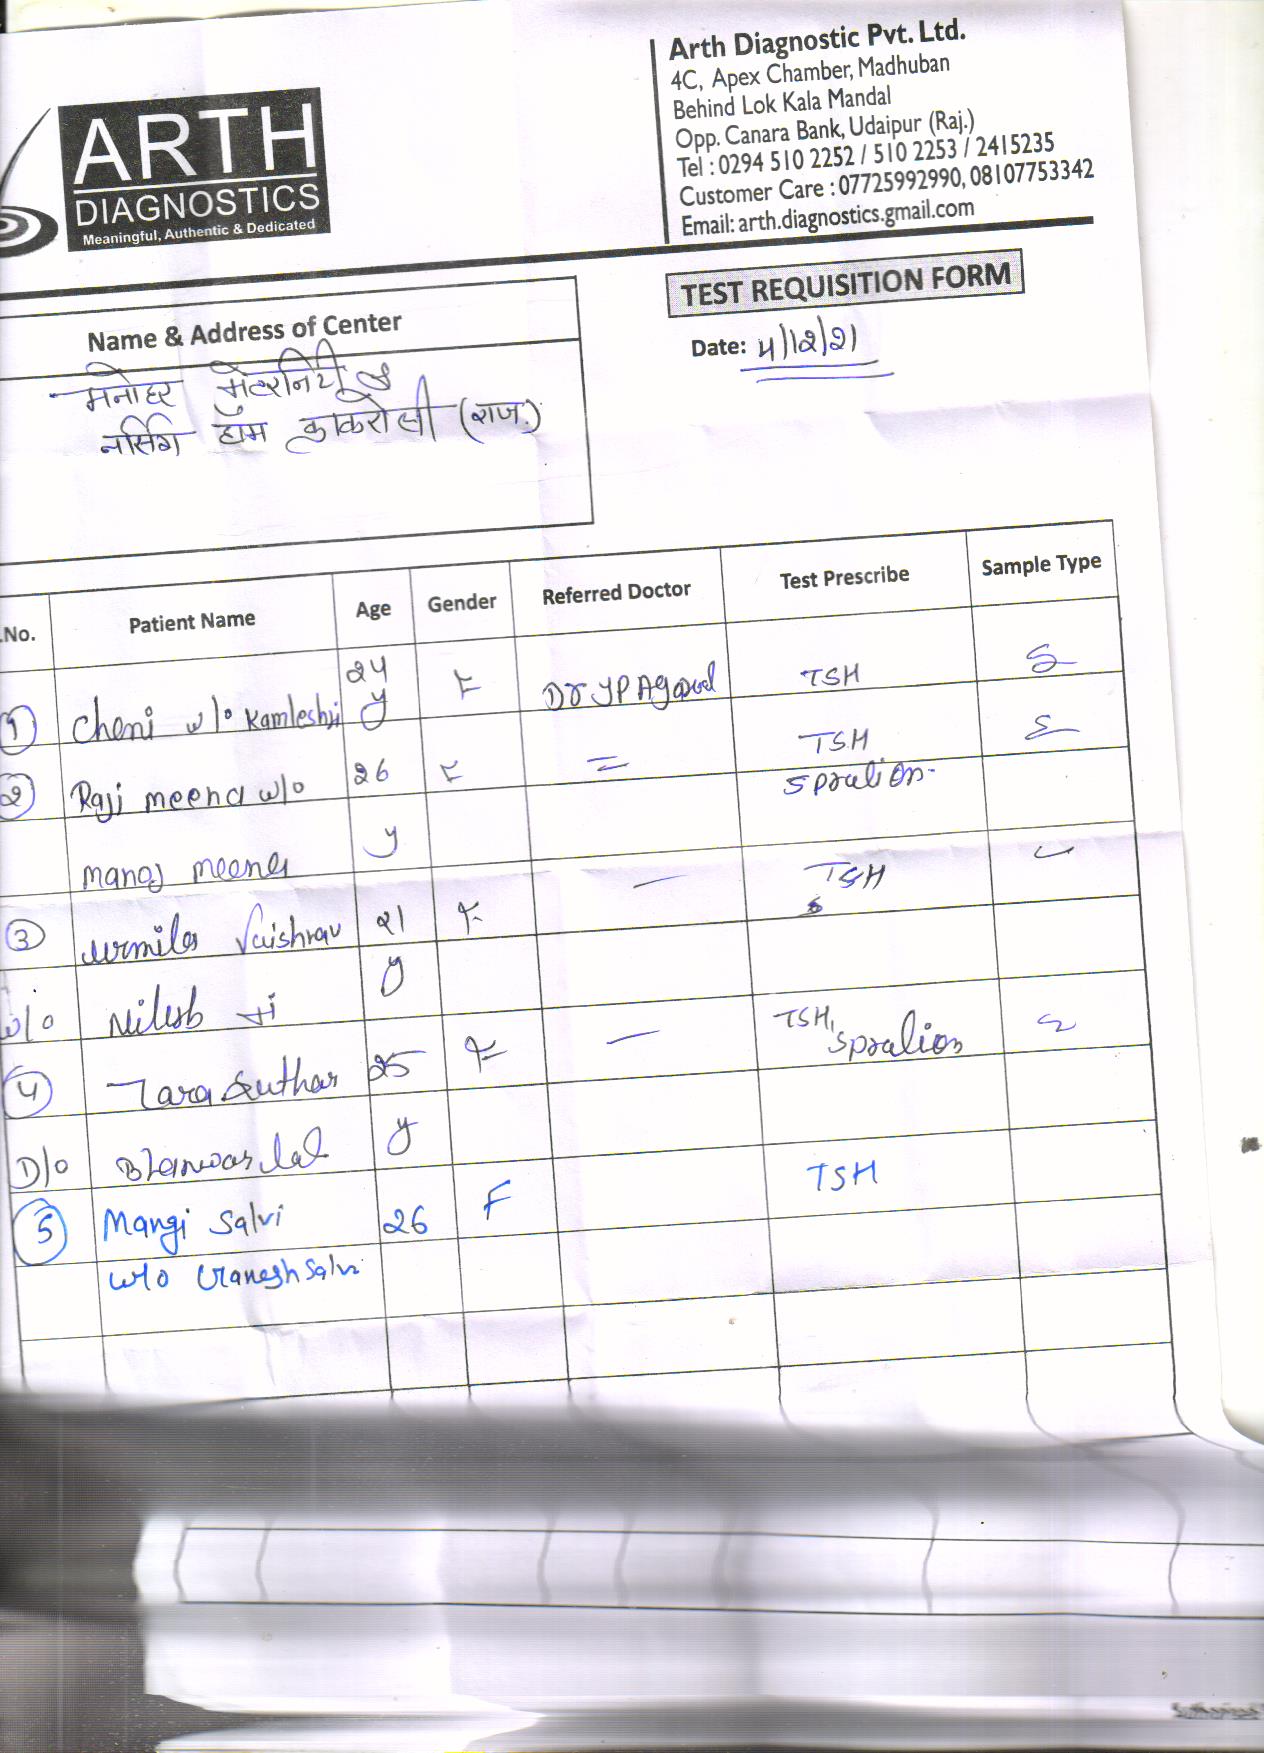 Arth Diagnostic Pvt. Ltd.
4C, Apex Chamber, Madhuban
Behind Lok Kala Mandal
Opp. Canara Bank, Udaipur (Raj.)
Tel : 0294 510 2252 / 510 2253 / 2415235
Customer Care : 07725992990, 08107753342
Email: arth.diagnostics.gmail.com
ARTH
DIAGNOSTICS
Meaningful, Authentic & Dedicated
TEST REQUISITION FORM
Date: 4/12/21
Name & Address of Center
मनोहर मेटरनिटी
नर्सिंग होम कांकरोली (राज.)
.No. Patient Name Age Gender Referred Doctor Test Prescribe Sample Type
1 Cheni w/o Kamleshji 24 y F Dr YP Agarwal TSH S
2 Raji meena w/o 26 F = TSH S
Spralion
manoj meena y
3 urmila Vaishnav 21 F — TSH
w/o Nilesh ji y
4 Tara Suthar 25 F — TSH, Spralion S
D/o Bhanwar lal y
5 Mangi Salvi 26 F TSH
w/o Ganesh Salvi